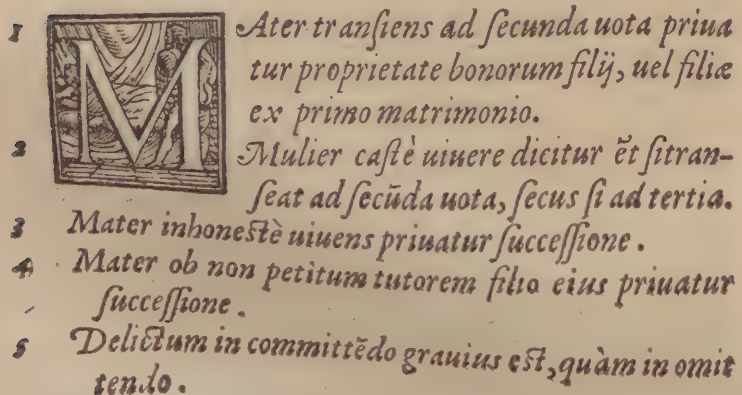 1 MAter transiens ad secunda uota priua
tur proprietate bonorum filij, uel filiæ
ex primo matrimonio.
2 Mulier castè uiuere dicitur ēt si tran-
seat ad secūda uota, secus si ad tertia.
3 Mater inhonestè uiuens priuatur successione.
4 Mater ob non petitum tutorem filio eius priuatur
successione.
5 Delictum in committēdo grauius est, quàm in omit
tendo.